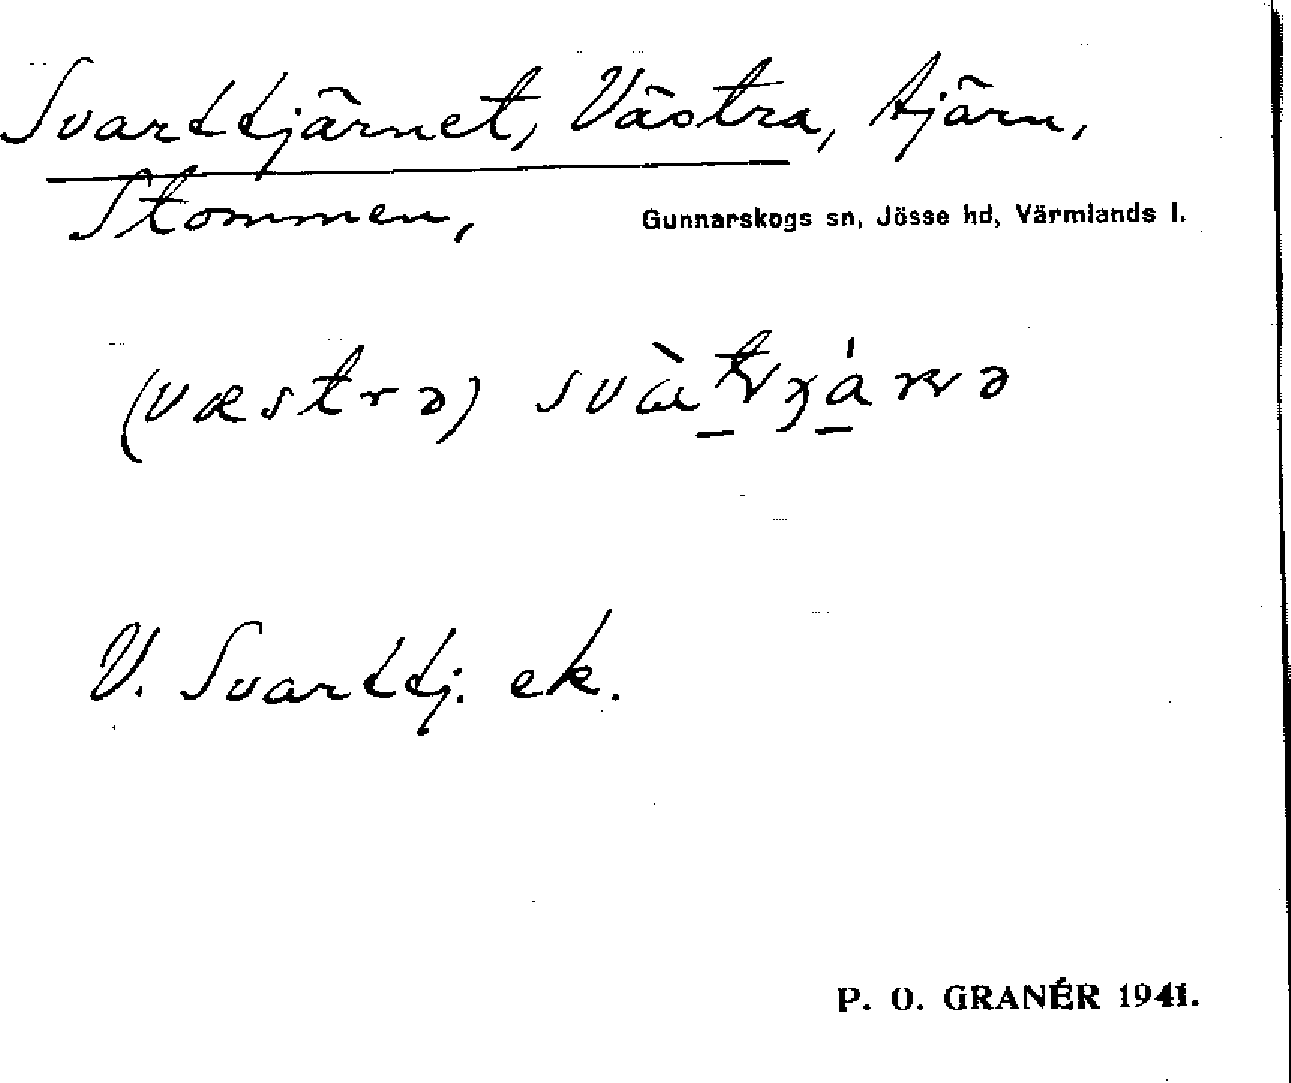 Svarttjärnet, Västra, tjärn,
Stommen,
Gunnarskogs sn, Jösse hd, Värmlands l.
(væstrə)
V. Svarttj. ek.
P. O. GRANÉR 1941.